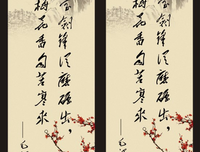 宝剑锋从磨砺出
梅花香自苦寒来
宝剑锋从磨砺出
梅花香自苦寒来